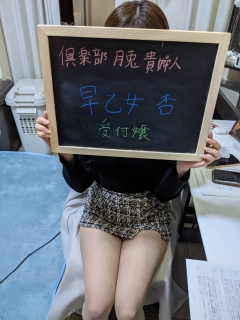 倶楽部 月兎 貴婦人
早乙女 杏
受付嬢